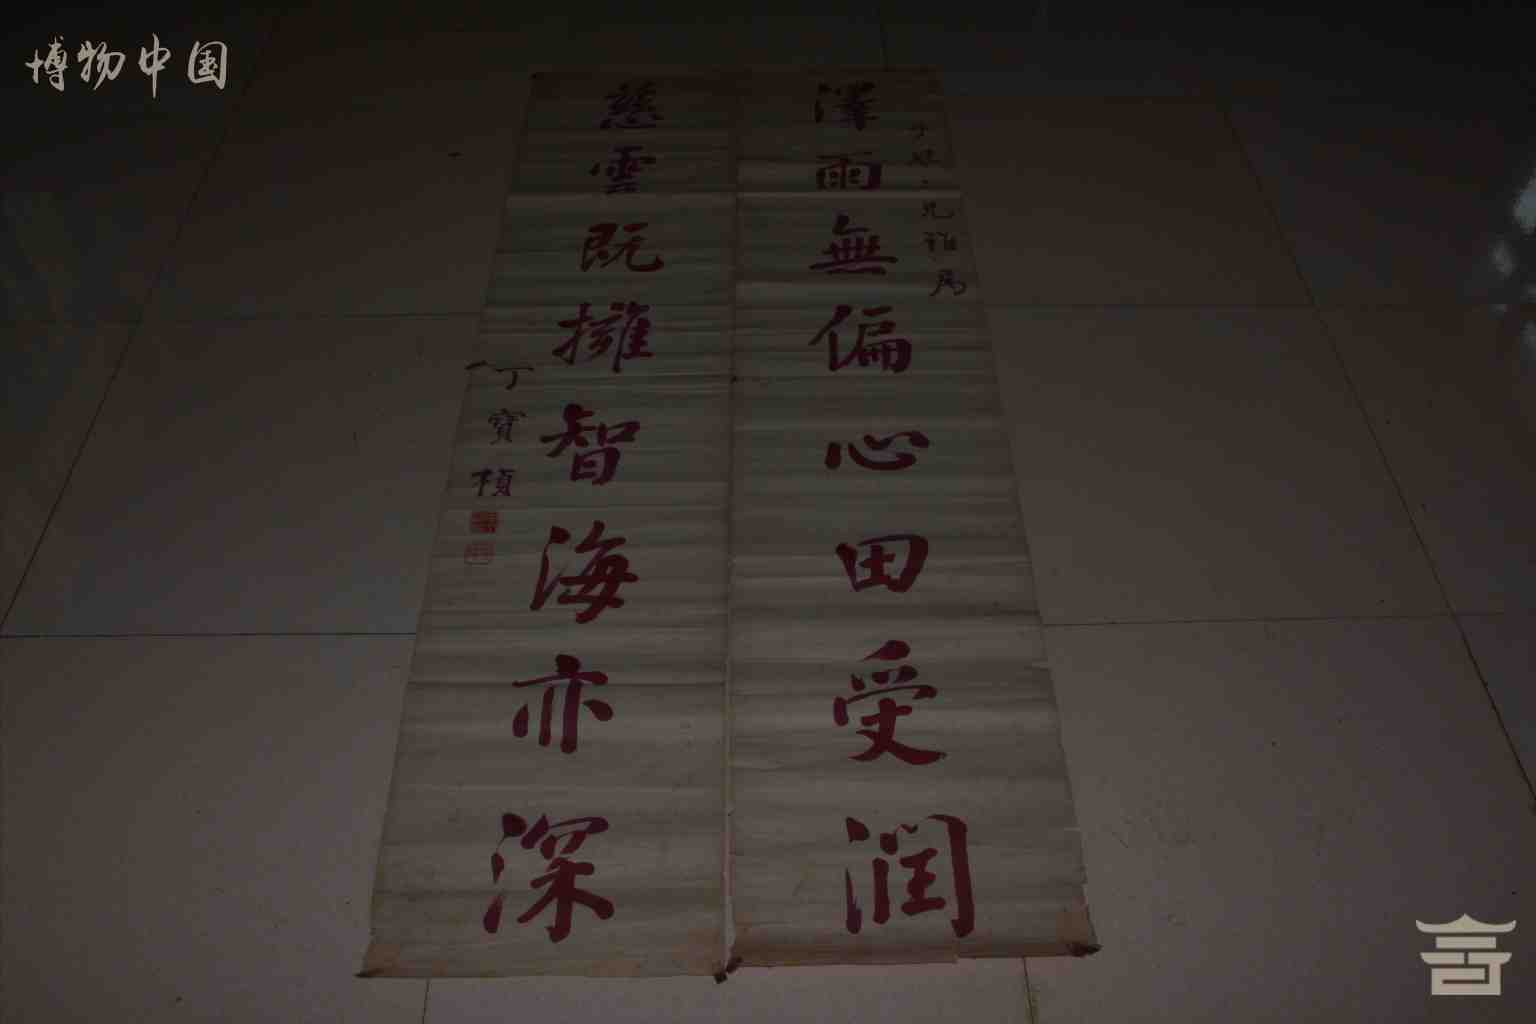 博物中国
澤雨無偏心田受潤
兄雅属
慈雲既擁智海亦深
丁寶楨